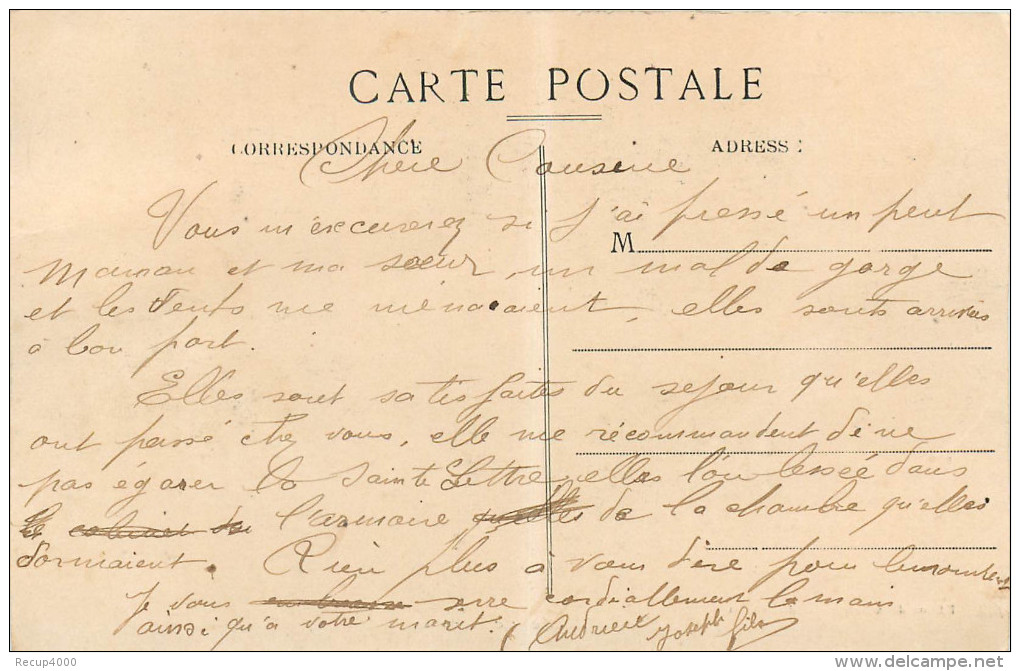 CARTE POSTALE
CORRESPONDANCE
ADRESSE
Chere Cousine
Vous m'excuserez si j'ai pressé un peut
M
Maman et ma sœur, un mal de gorge
et les dents me menacaient, elles sonts arrivées
à bon port.
Elles sont satisfaites du sejour qu'elles
ont passé chez vous, elle me récommandent de ne
pas égarer la Sainte Lettre, elles l'on lessée dans
l'armoire de la chambre qu'elles
dormaient. Rien plus à vous dire pour le moment
Je vous serre cordiallement la main
ainsi qu'a votre marit. Joseph fils
Recup4000
www.delcampe.net